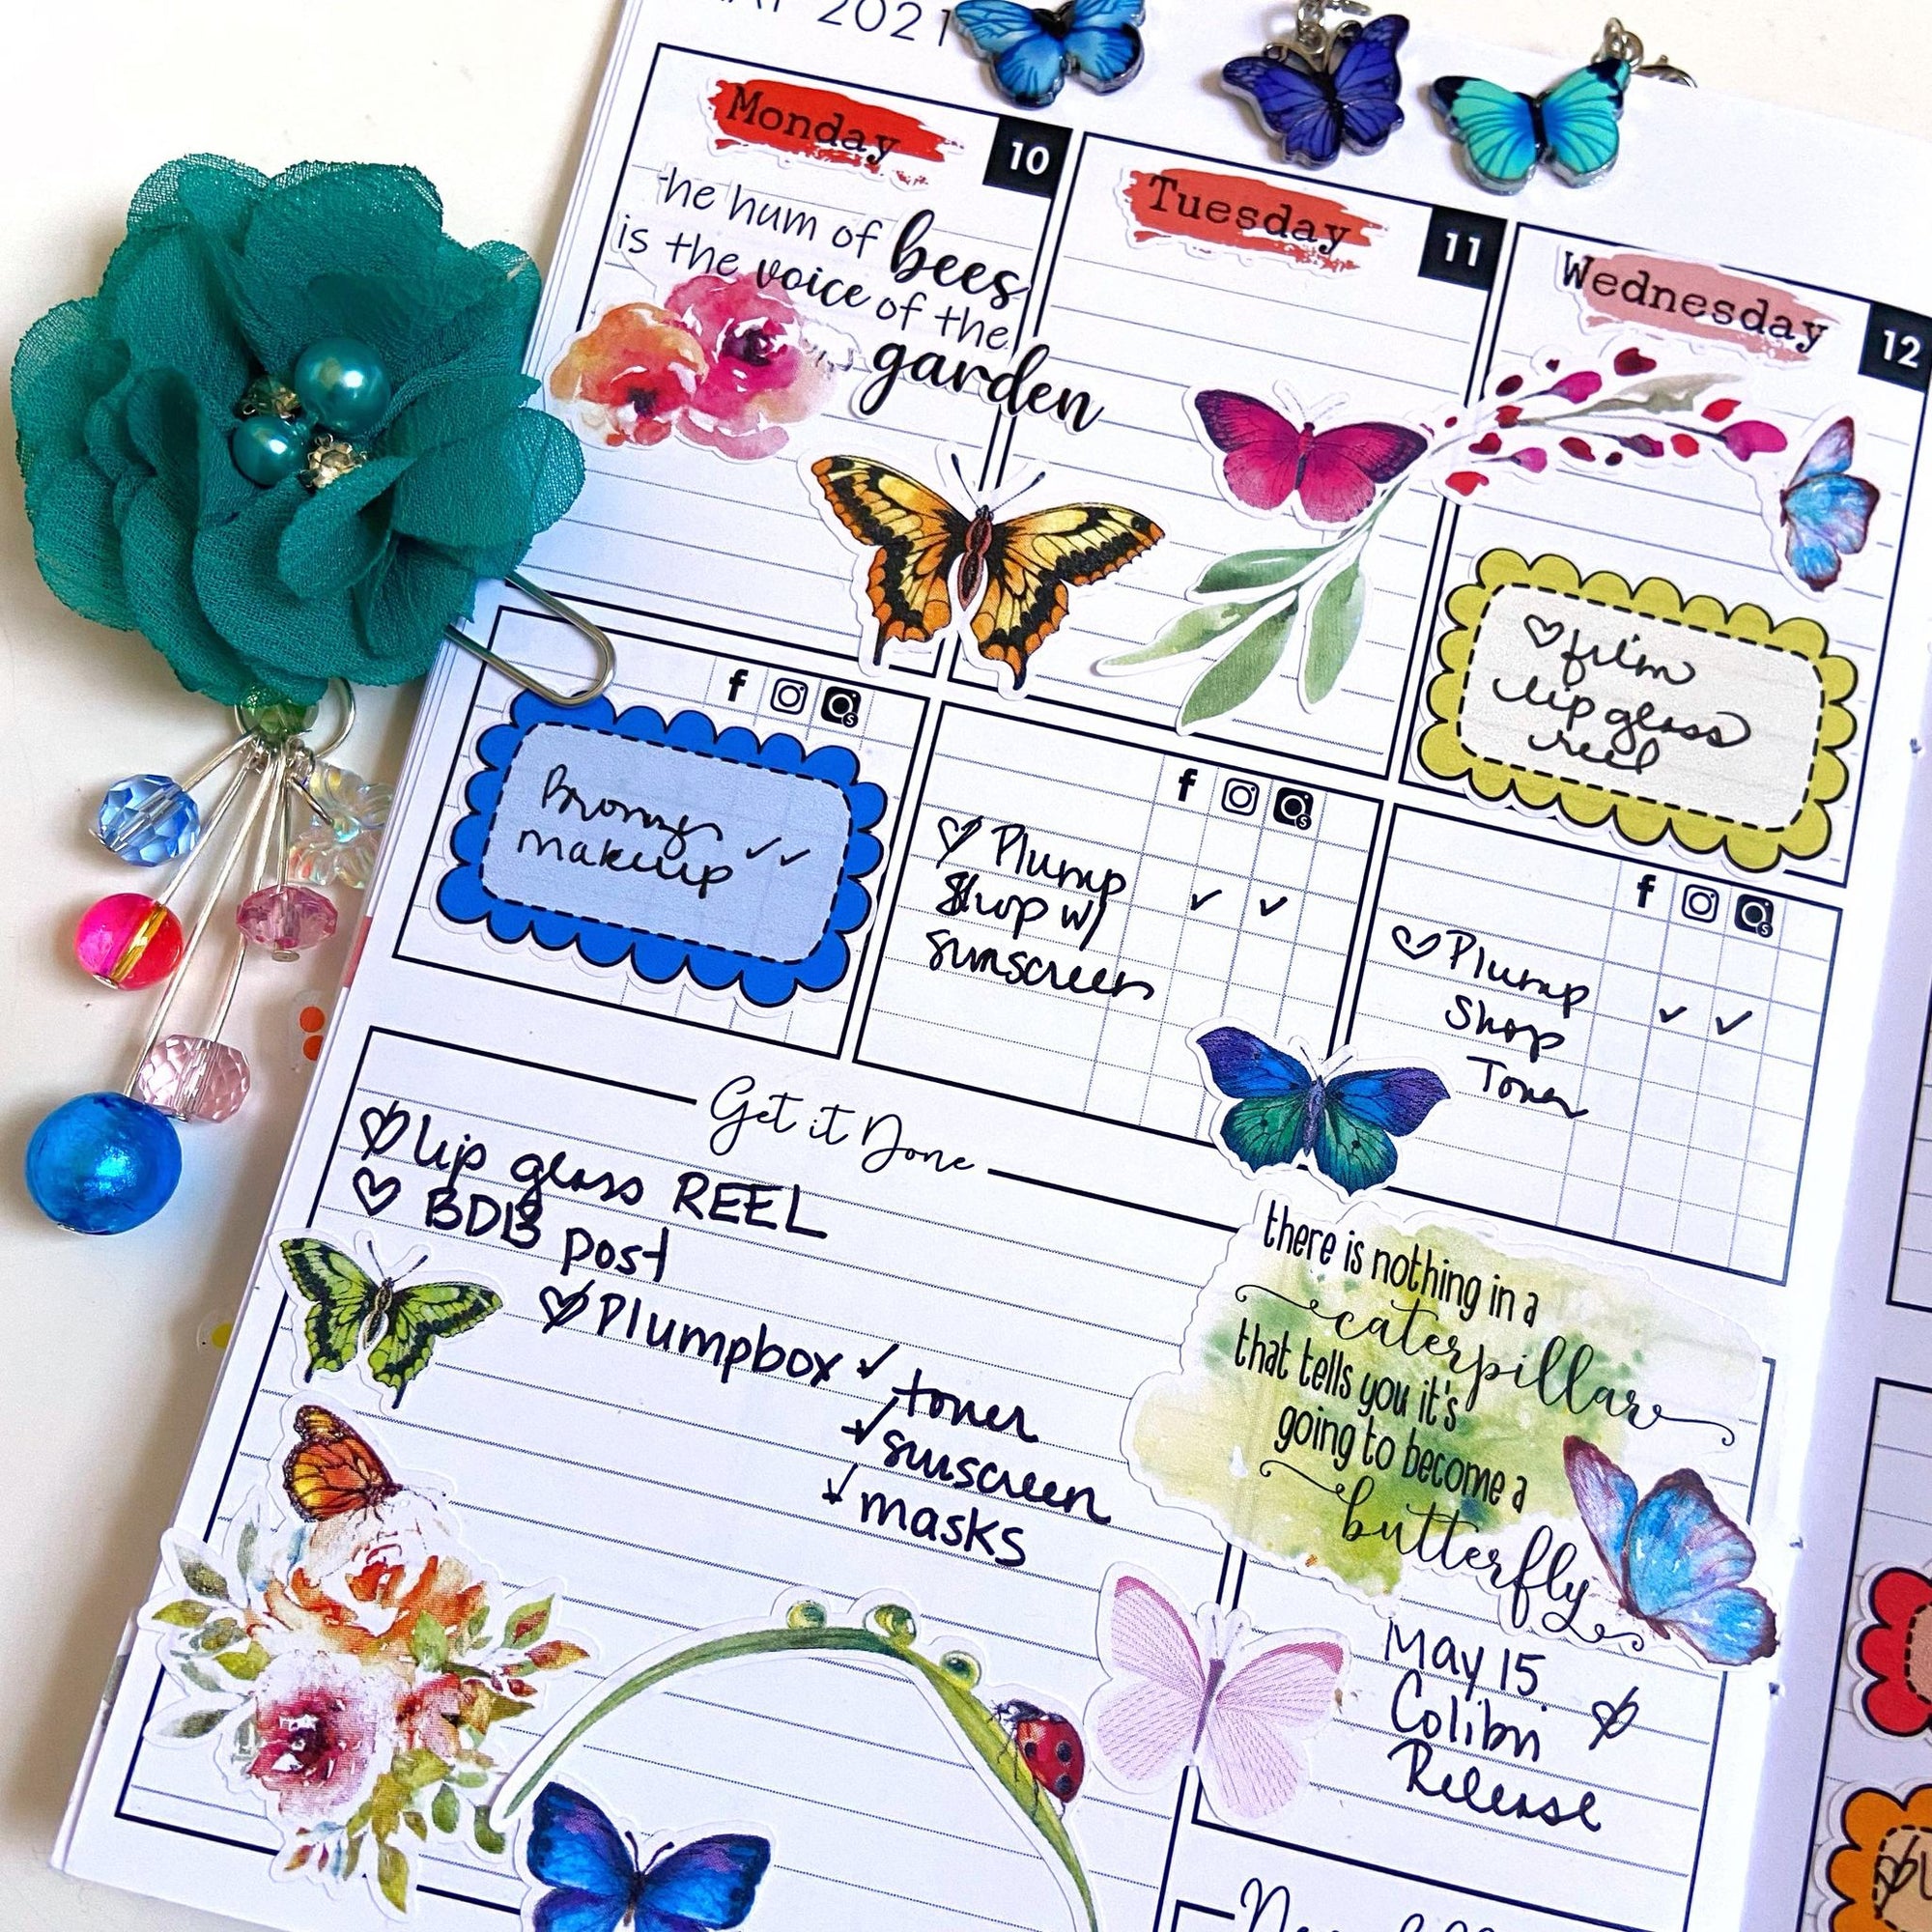 2021
Monday
10
he hum of bees
is the voice of the
garden
Tuesday
11
Wednesday
12
film
lip gloss
reel
f
Bronzer
makeup ✓✓
f
Plump
Shop w/
sunscreen
✓ ✓
f
Plump
Shop
Toner
✓ ✓
Get it Done
lip gloss REEL
BDB post
Plumpbox ✓ toner
✓ sunscreen
✓ masks
there is nothing in a
caterpillar
that tells you it's
going to become a
butterfly
May 15
Colibri
Release